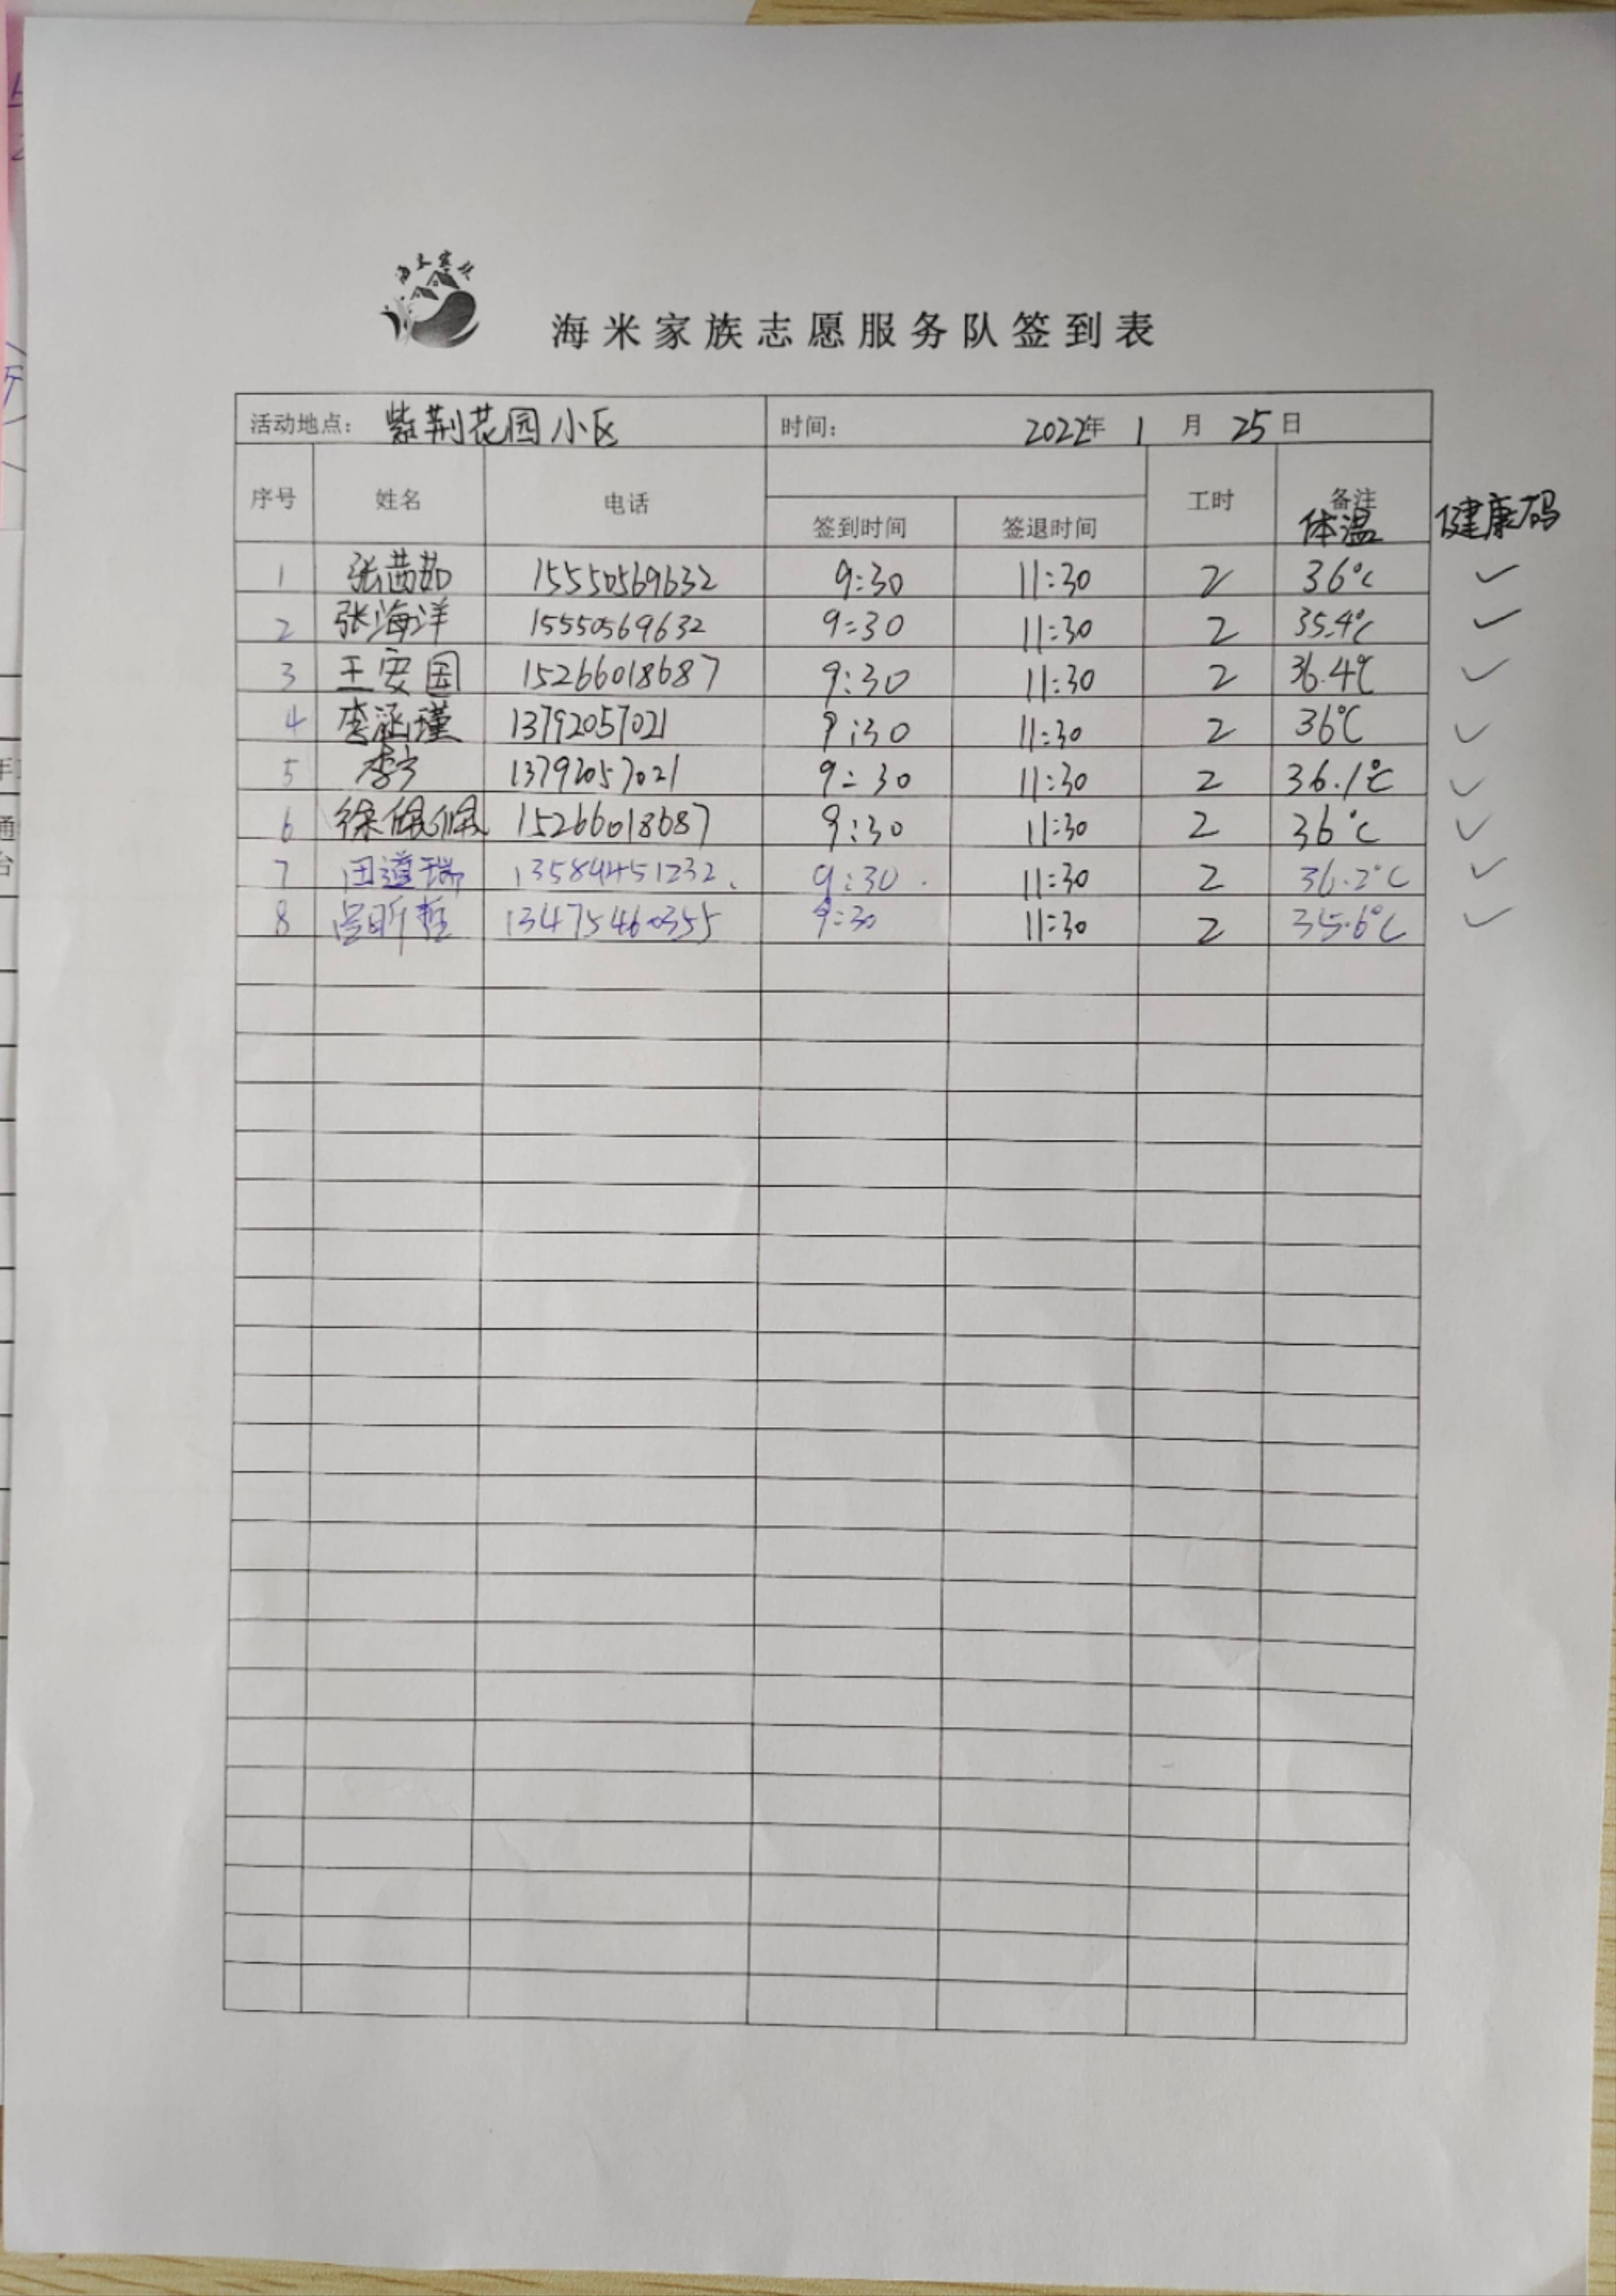 海米家族志愿服务队签到表
活动地点: 紫荆花园小区 时间: 2022年 1 月 25 日
序号 姓名 电话 签到时间 签退时间 工时 备注 体温 健康码
1 张茜茹 15550569632 9:30 11:30 2 36℃ ✓
2 张海洋 15550569632 9:30 11:30 2 35.4℃ ✓
3 王安国 15266018687 9:30 11:30 2 36.4℃ ✓
4 李涵瑾 13792057021 9:30 11:30 2 36℃ ✓
5 李宁 13792057021 9:30 11:30 2 36.1℃ ✓
6 徐佩佩 15266018687 9:30 11:30 2 36℃ ✓
7 田道瑞 13584451232. 9:30. 11:30 2 36.2℃ ✓
8 13475460355 9:30 11:30 2 35.6℃ ✓